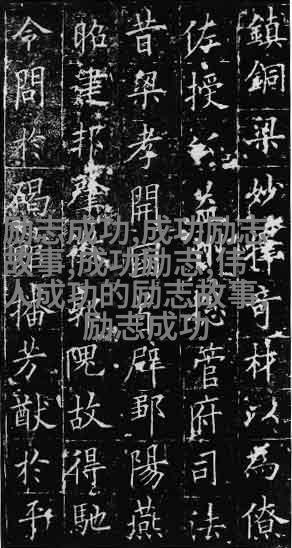 鎮銅梁妙擇奇材以為僚
佐授公益州總管府司法
昔梁孝開國首辟鄒陽燕
昭建邦肇徵郭隗故得馳
令問於碣館播芳猷於平
励志成功,成功励志
故事,成功励志,伟
人成功的励志故事,
励志成功